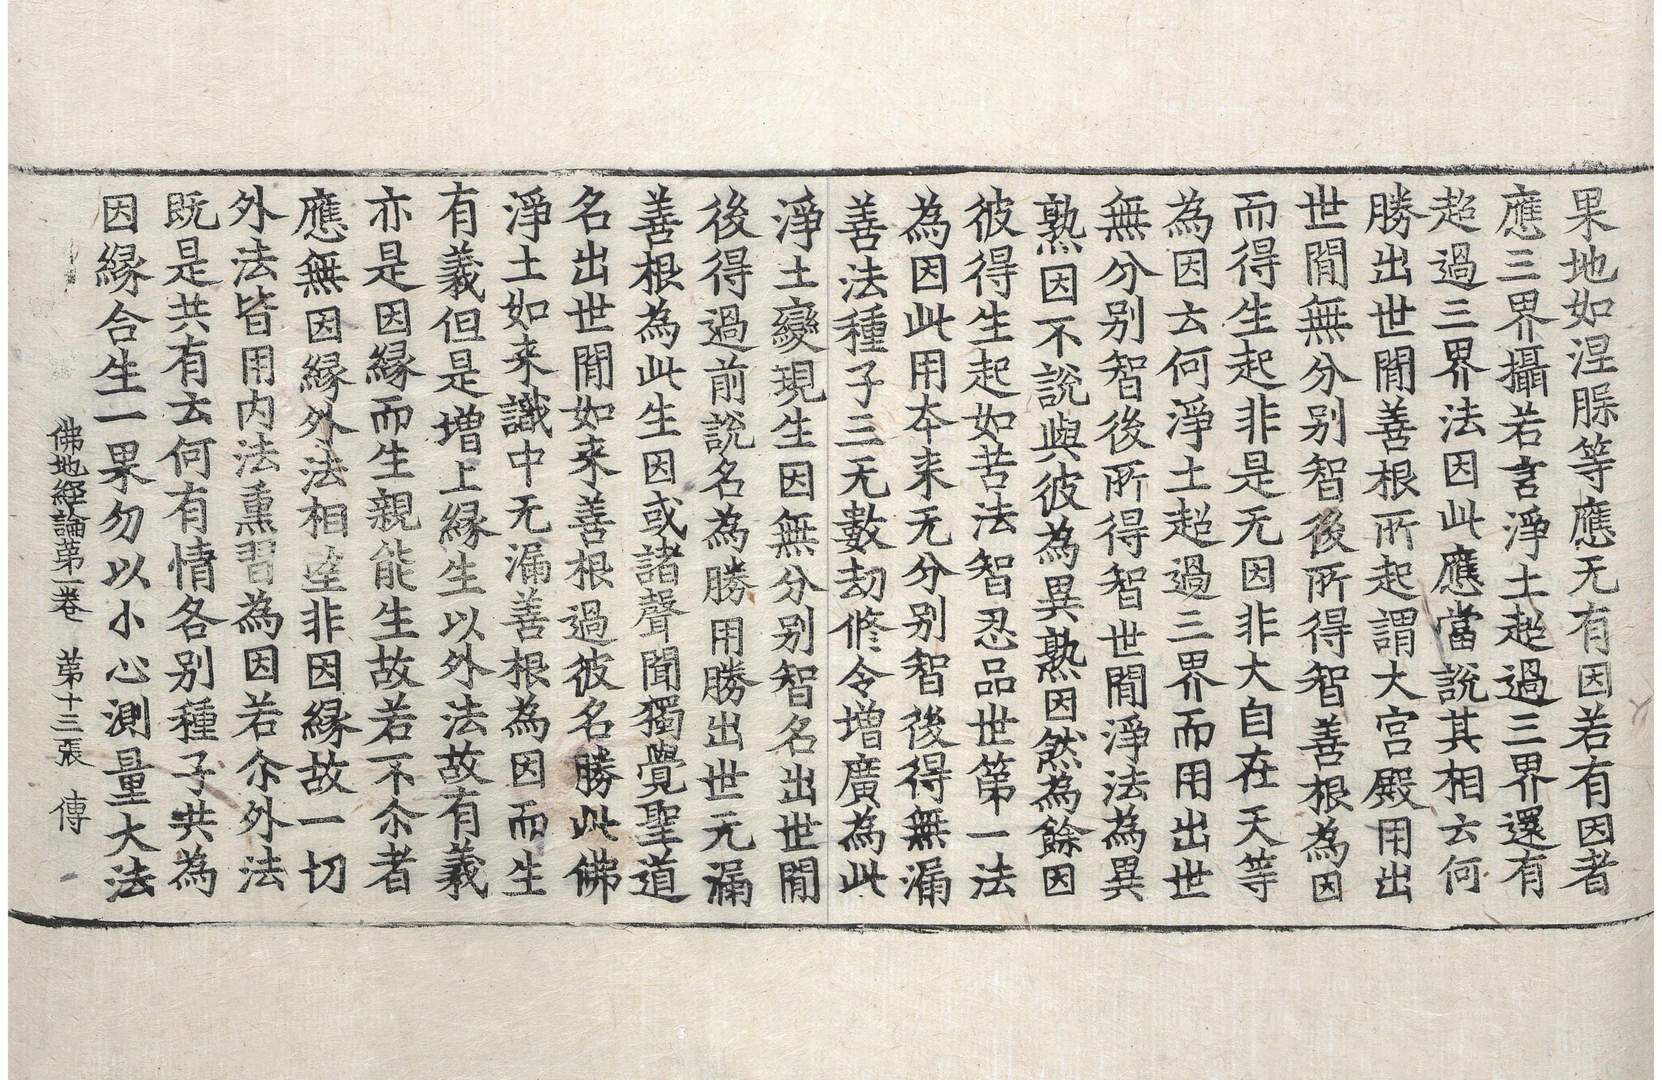 果地如涅腺等應无有因若有因者
應三界攝若言淨土超過三界還有
超過三界法因此應當說其相云何
勝出世閒善根所起謂大宮殿用出
世閒無分别智後所得智善根為因
而得生起非是无因非大自在天等
為因云何淨土超過三界而用出世
無分别智後所得智世閒淨法為異
熟因不說與彼為異熟因然為餘因
彼得生起如苦法智忍品世第一法
為因此用本来无分别智後得無漏
善法種子三无數劫修令增廣為此
淨土變現生因無分别智名出世閒
後得過前說名為勝用勝出世无漏
善根為此生因或諸聲聞獨覺聖道
名出世閒如来善根過彼名勝此佛
淨土如来識中无漏善根為因而生
有義但是增上緣生以外法故有義
亦是因緣而生親能生故若不尒者
應無因緣外法相望非因緣故一切
外法皆用内法熏習為因若尒外法
既是共有云何有情各别種子共為
因緣合生一果勿以小心測量大法
佛地經論第一卷　第十三張　傳